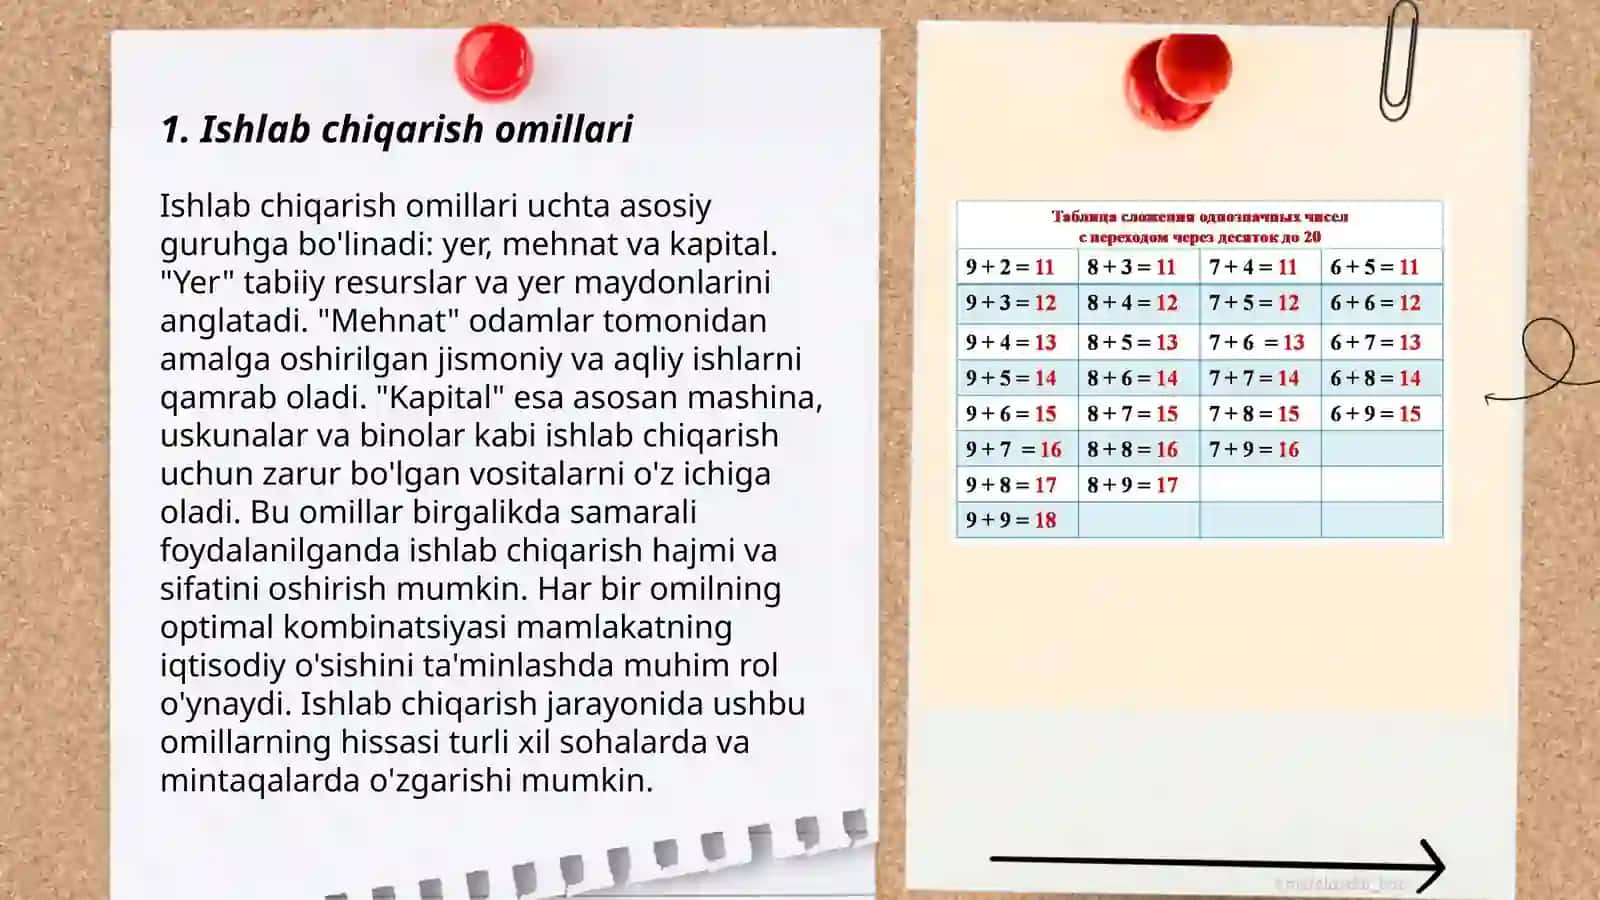 1. Ishlab chiqarish omillari
Ishlab chiqarish omillari uchta asosiy
guruhga bo'linadi: yer, mehnat va kapital.
"Yer" tabiiy resurslar va yer maydonlarini
anglatadi. "Mehnat" odamlar tomonidan
amalga oshirilgan jismoniy va aqliy ishlarni
qamrab oladi. "Kapital" esa asosan mashina,
uskunalar va binolar kabi ishlab chiqarish
uchun zarur bo'lgan vositalarni o'z ichiga
oladi. Bu omillar birgalikda samarali
foydalanilganda ishlab chiqarish hajmi va
sifatini oshirish mumkin. Har bir omilning
optimal kombinatsiyasi mamlakatning
iqtisodiy o'sishini ta'minlashda muhim rol
o'ynaydi. Ishlab chiqarish jarayonida ushbu
omillarning hissasi turli xil sohalarda va
mintaqalarda o'zgarishi mumkin.
Таблица сложения однозначных чисел
с переходом через десяток до 20
9 + 2 = 11 8 + 3 = 11 7 + 4 = 11 6 + 5 = 11
9 + 3 = 12 8 + 4 = 12 7 + 5 = 12 6 + 6 = 12
9 + 4 = 13 8 + 5 = 13 7 + 6 = 13 6 + 7 = 13
9 + 5 = 14 8 + 6 = 14 7 + 7 = 14 6 + 8 = 14
9 + 6 = 15 8 + 7 = 15 7 + 8 = 15 6 + 9 = 15
9 + 7 = 16 8 + 8 = 16 7 + 9 = 16
9 + 8 = 17 8 + 9 = 17
9 + 9 = 18